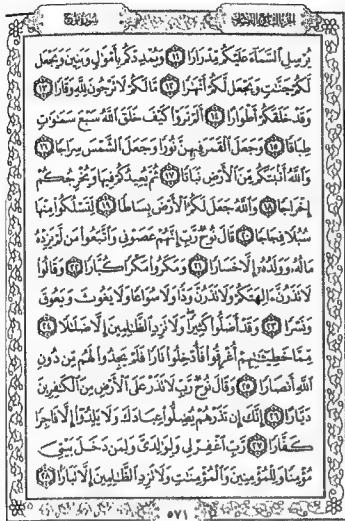 الجزء التاسع والعشرون سورة نوح
يُرْسِلِ ٱلسَّمَآءَ عَلَيْكُم مِّدْرَارًا ١١ وَيُمْدِدْكُم بِأَمْوَٰلٍ وَبَنِينَ وَيَجْعَل
لَّكُمْ جَنَّٰتٍ وَيَجْعَل لَّكُمْ أَنْهَٰرًا ١٢ مَّا لَكُمْ لَا تَرْجُونَ لِلَّهِ وَقَارًا ١٣
وَقَدْ خَلَقَكُمْ أَطْوَارًا ١٤ أَلَمْ تَرَوْا۟ كَيْفَ خَلَقَ ٱللَّهُ سَبْعَ سَمَٰوَٰتٍ
طِبَاقًا ١٥ وَجَعَلَ ٱلْقَمَرَ فِيهِنَّ نُورًا وَجَعَلَ ٱلشَّمْسَ سِرَاجًا ١٦
وَٱللَّهُ أَنۢبَتَكُم مِّنَ ٱلْأَرْضِ نَبَاتًا ١٧ ثُمَّ يُعِيدُكُمْ فِيهَا وَيُخْرِجُكُمْ
إِخْرَاجًا ١٨ وَٱللَّهُ جَعَلَ لَكُمُ ٱلْأَرْضَ بِسَاطًا ١٩ لِّتَسْلُكُوا۟ مِنْهَا
سُبُلًا فِجَاجًا ٢٠ قَالَ نُوحٌ رَّبِّ إِنَّهُمْ عَصَوْنِى وَٱتَّبَعُوا۟ مَن لَّمْ يَزِدْهُ
مَالُهُۥ وَوَلَدُهُۥٓ إِلَّا خَسَارًا ٢١ وَمَكَرُوا۟ مَكْرًا كُبَّارًا ٢٢ وَقَالُوا۟
لَا تَذَرُنَّ ءَالِهَتَكُمْ وَلَا تَذَرُنَّ وَدًّا وَلَا سُوَاعًا وَلَا يَغُوثَ وَيَعُوقَ
وَنَسْرًا ٢٣ وَقَدْ أَضَلُّوا۟ كَثِيرًا وَلَا تَزِدِ ٱلظَّٰلِمِينَ إِلَّا ضَلَٰلًا ٢٤
مِّمَّا خَطِيٓـَٰٔتِهِمْ أُغْرِقُوا۟ فَأُدْخِلُوا۟ نَارًا فَلَمْ يَجِدُوا۟ لَهُم مِّن دُونِ
ٱللَّهِ أَنصَارًا ٢٥ وَقَالَ نُوحٌ رَّبِّ لَا تَذَرْ عَلَى ٱلْأَرْضِ مِنَ ٱلْكَٰفِرِينَ
دَيَّارًا ٢٦ إِنَّكَ إِن تَذَرْهُمْ يُضِلُّوا۟ عِبَادَكَ وَلَا يَلِدُوٓا۟ إِلَّا فَاجِرًا
كَفَّارًا ٢٧ رَّبِّ ٱغْفِرْ لِى وَلِوَٰلِدَىَّ وَلِمَن دَخَلَ بَيْتِىَ
مُؤْمِنًا وَلِلْمُؤْمِنِينَ وَٱلْمُؤْمِنَٰتِ وَلَا تَزِدِ ٱلظَّٰلِمِينَ إِلَّا تَبَارًۢا ٢٨
٥٧١